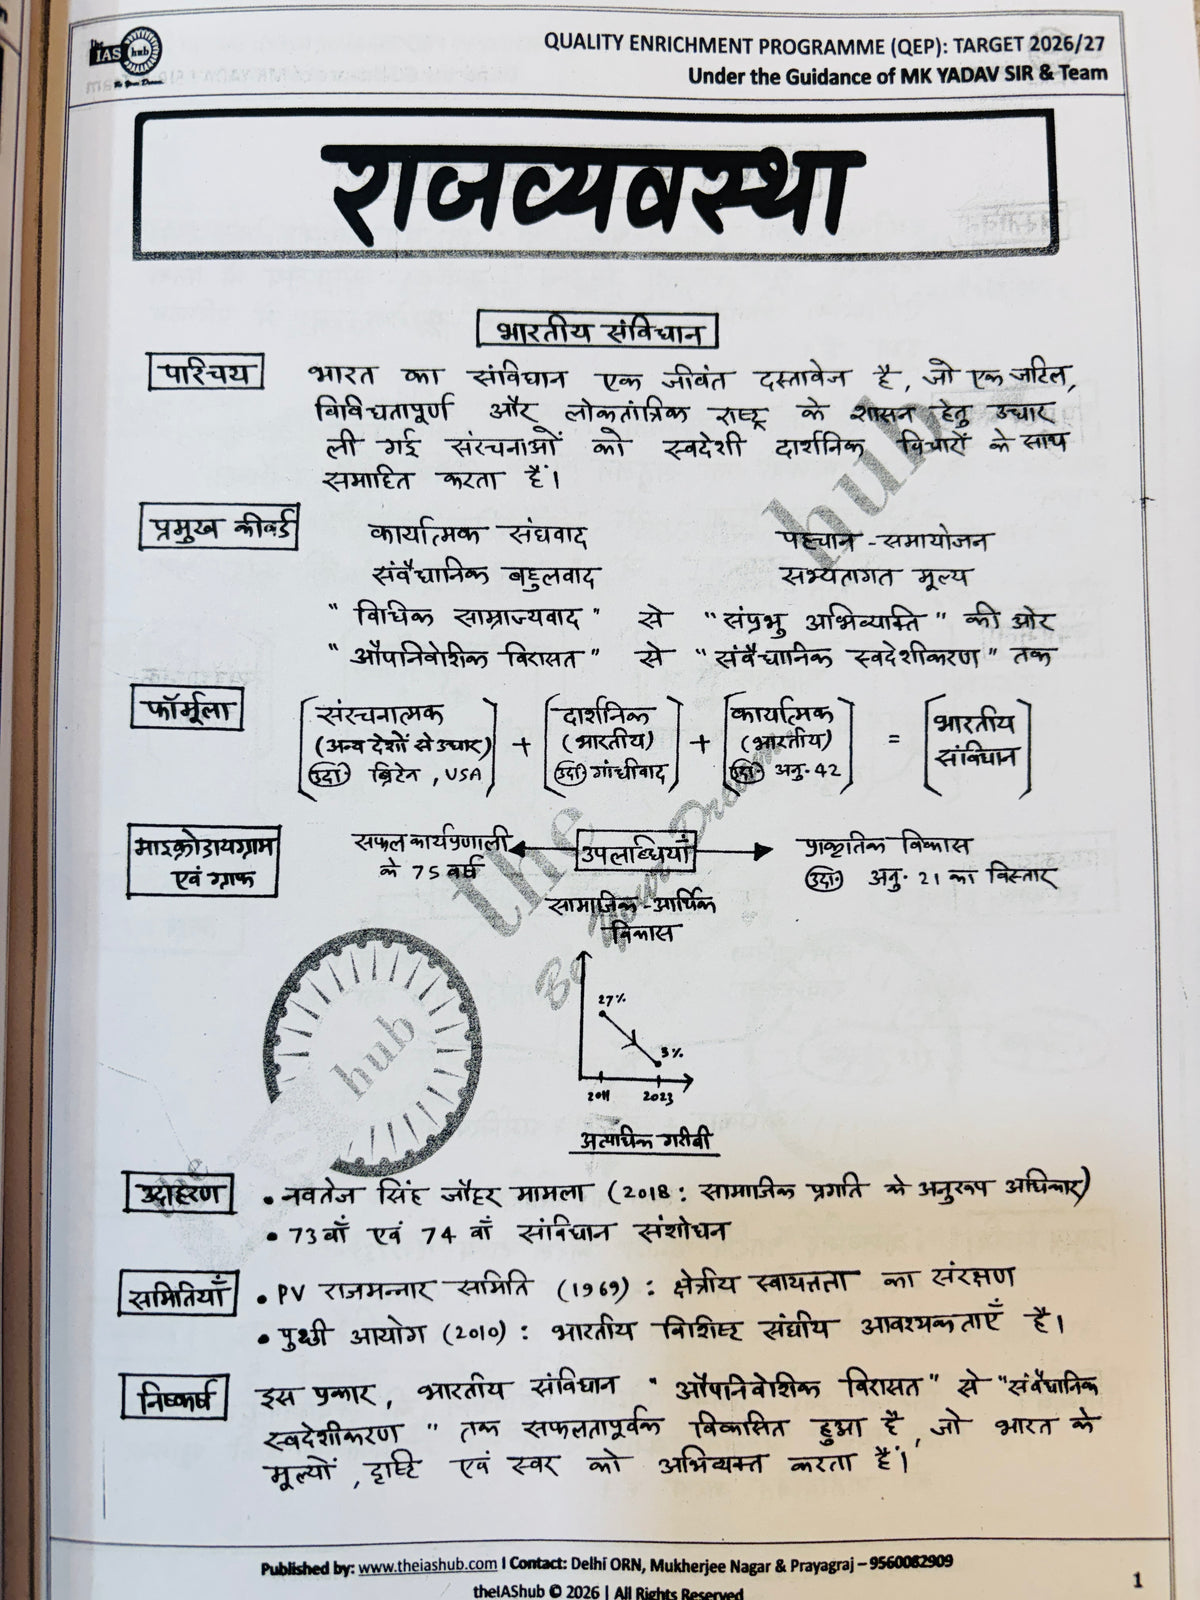 the IAS hub
Be Your Dream
QUALITY ENRICHMENT PROGRAMME (QEP): TARGET 2026/27
Under the Guidance of MK YADAV SIR & Team
राजव्यवस्था
भारतीय संविधान
परिचय
भारत का संविधान एक जीवंत दस्तावेज है, जो एक जटिल,
विविधतापूर्ण और लोकतांत्रिक राष्ट्र के शासन हेतु उधार
ली गई संरचनाओं को स्वदेशी दार्शनिक विचारों के साथ
समाहित करता है।
प्रमुख कीवर्ड
कार्यात्मक संघवाद पहचान - समायोजन
संवैधानिक बहुलवाद सभ्यतागत मूल्य
" विधिक साम्राज्यवाद " से " संप्रभु अभिव्यक्ति " की ओर
" औपनिवेशिक विरासत " से " संवैधानिक स्वदेशीकरण " तक
फॉर्मूला
[संरचनात्मक (अन्य देशों से उधार) उदा० ब्रिटेन, USA] + [दार्शनिक (भारतीय) उदा० गांधीवाद] + [कार्यात्मक (भारतीय) उदा० अनु. 42] = [भारतीय संविधान]
माइक्रोडायग्राम
एवं ग्राफ
सफल कार्यप्रणाली
के 75 वर्ष
उपलब्धियाँ
प्राकृतिक विकास
उदा० अनु. 21 का विस्तार
सामाजिक - आर्थिक
विकास
27%
3%
2011 2023
अत्यधिक गरीबी
उदाहरण
• नवतेज सिंह जौहर मामला (2018 : सामाजिक प्रगति के अनुरूप अधिकार)
• 73 वाँ एवं 74 वाँ संविधान संशोधन
समितियाँ
• PV राजमन्नार समिति (1969) : क्षेत्रीय स्वायत्तता का संरक्षण
• पुंछी आयोग (2010) : भारतीय विशिष्ट संघीय आवश्यकताएँ है।
निष्कर्ष
इस प्रकार, भारतीय संविधान " औपनिवेशिक विरासत " से " संवैधानिक
स्वदेशीकरण " तक सफलतापूर्वक विकसित हुआ है, जो भारत के
मूल्यों, दृष्टि एवं स्वर को अभिव्यक्त करता है।
the hub
Be Your Dream
Published by: www.theiashub.com I Contact: Delhi ORN, Mukherjee Nagar & Prayagraj – 9560082909
theIAShub © 2026 | All Rights Reserved
1